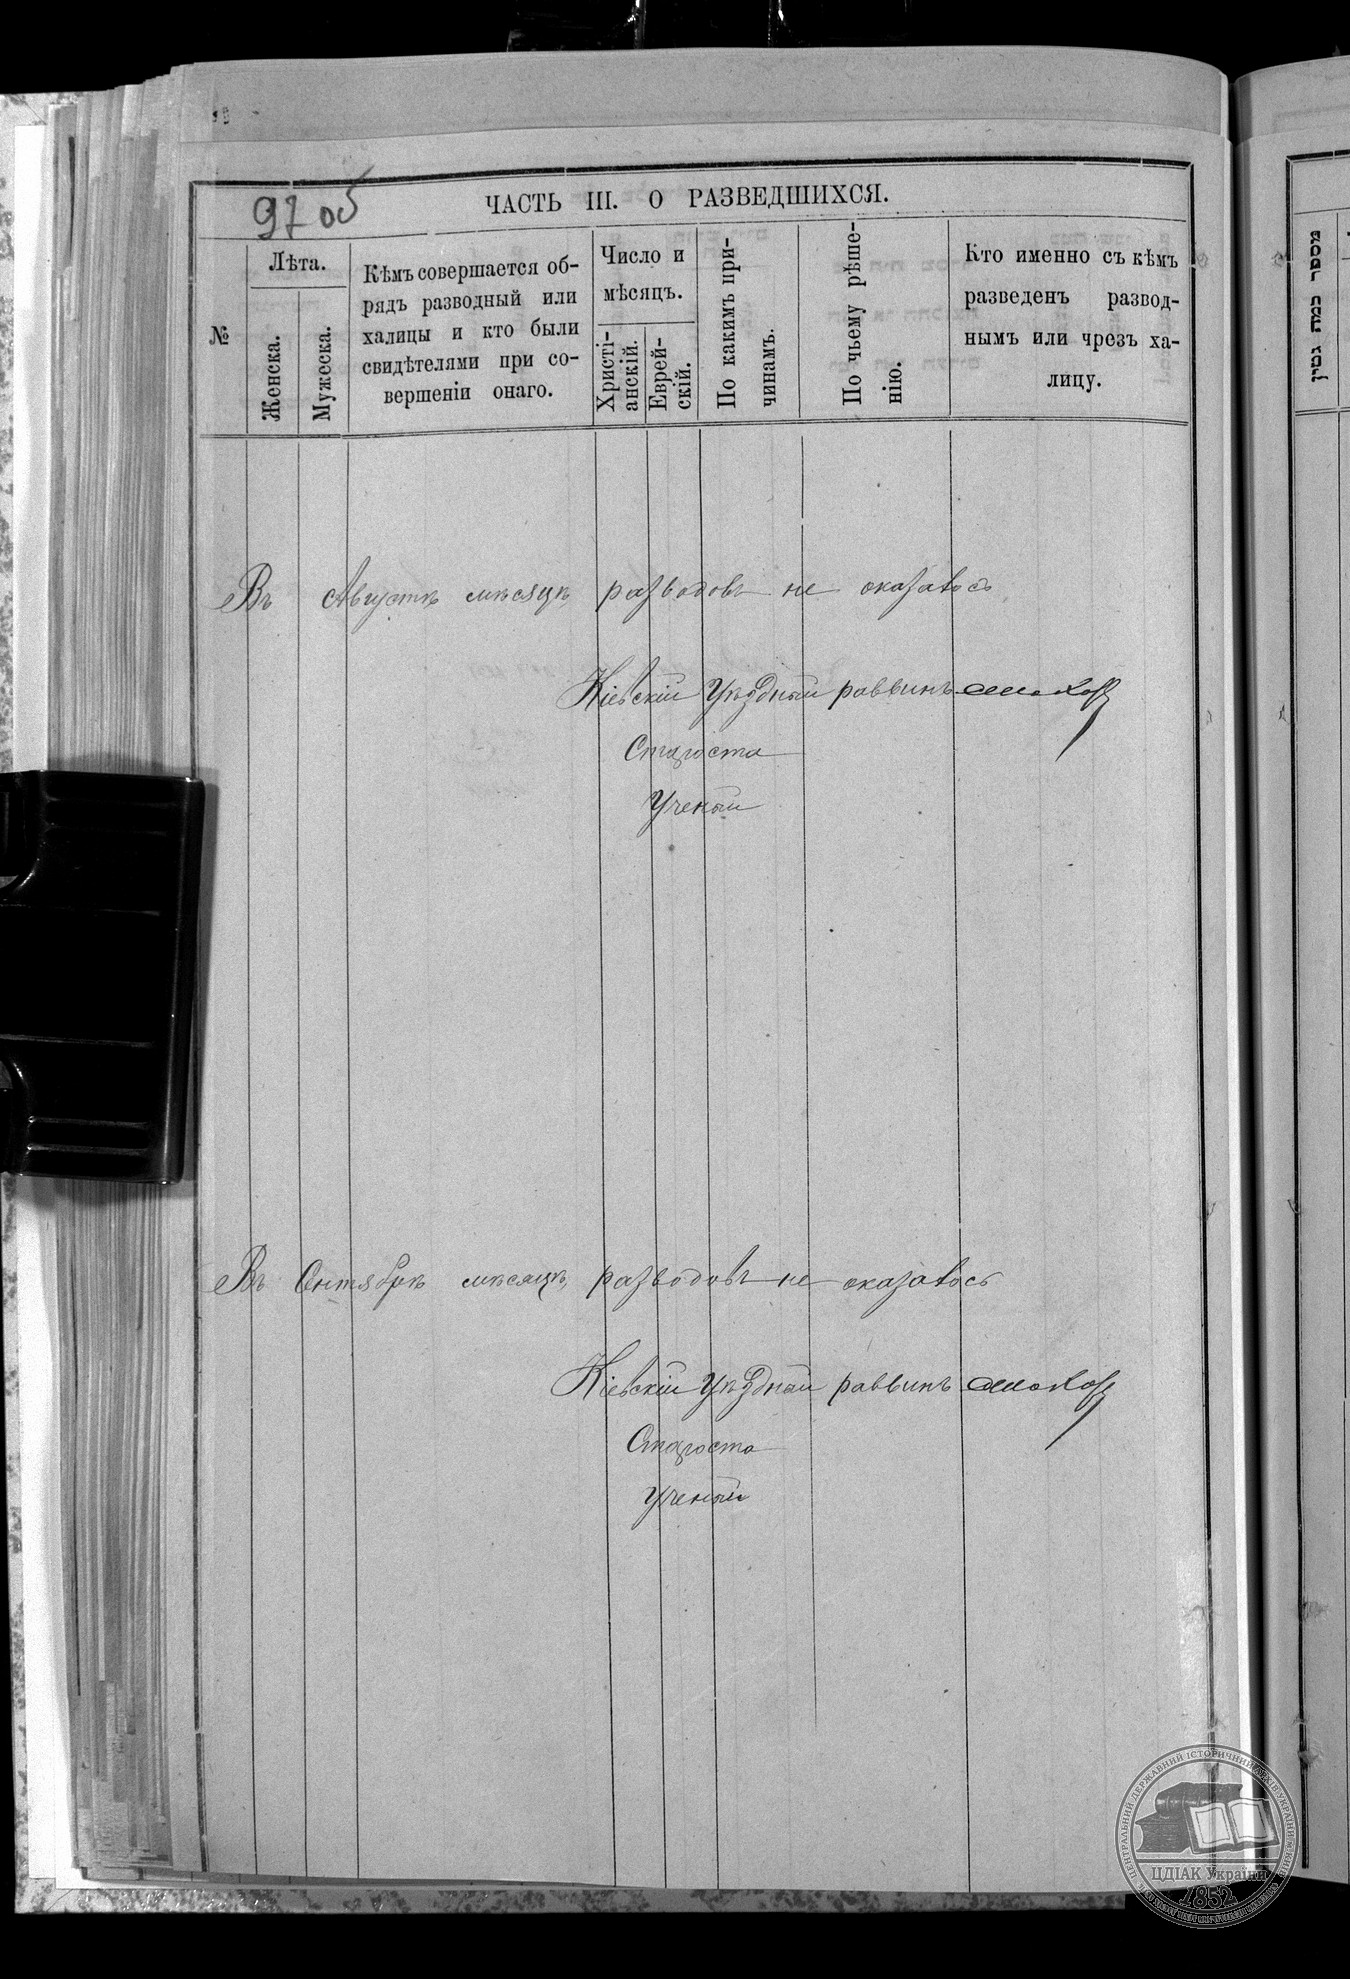 97 об
ЧАСТЬ III. О РАЗВЕДШИХСЯ.
№
Лѣта.
Женска.
Мужеска.
Кѣмъ совершается об-
рядъ разводный или
халицы и кто были
свидѣтелями при со-
вершеніи онаго.
Число и
мѣсяцъ.
Христі-
анскій.
Еврей-
скій.
По какимъ при-
чинамъ.
По чьему рѣше-
нію.
Кто именно съ кѣмъ
разведенъ развод-
нымъ или чрезъ ха-
лицу.
מספר כמה גטין
Въ Августѣ мѣсяцѣ разводовъ не оказалось
Кіевскій Уѣздный раввинъ
Староста
Ученый
Въ Сентябрѣ мѣсяцѣ, разводовъ не оказалось
Кіевскій Уѣздный раввинъ
Староста
Ученый
ЦЕНТРАЛЬНИЙ ДЕРЖАВНИЙ ІСТОРИЧНИЙ АРХІВ УКРАЇНИ
ЦДІАК України
1852